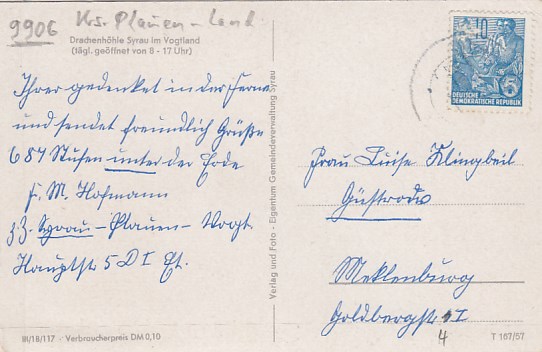 9906 Krs. Plauen-Land
Drachenhöhle Syrau im Vogtland
(tägl. geöffnet von 8 - 17 Uhr)
Ihrer gedenket in der Ferne
und sendet freundlich Grüße
687 Stufen unter der Erde
F. M. Hofmann
z.Z. Syrau-Plauen-Vogt
Hauptstr 5 D I Et.
III/18/117 - Verbraucherpreis DM 0,10
Verlag und Foto - Eigentum Gemeindeverwaltung Syrau
10
DEUTSCHE
DEMOKRATISCHE REPUBLIK
Frau Luise Klingbeil
Güstrow
Meklenburg
Goldbergst I
4
T 167/57